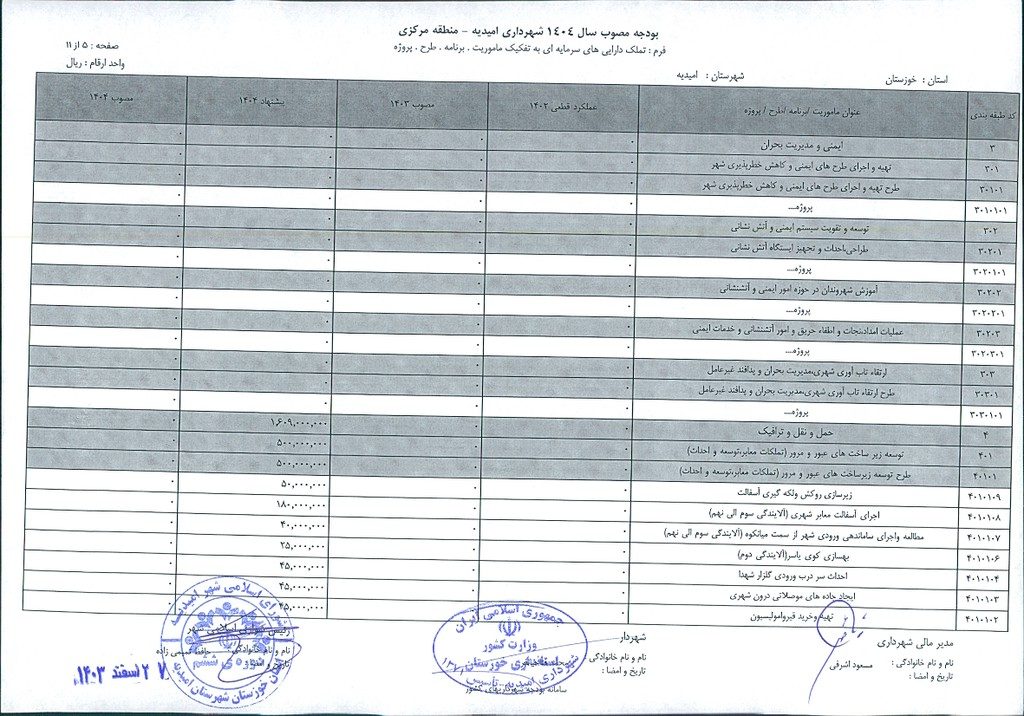 بودجه مصوب سال ۱۴۰۴ شهرداری امیدیه - منطقه مرکزی
فرم : تملک دارایی های سرمایه ای به تفکیک ماموریت . برنامه . طرح . پروژه
صفحه : ۵ از ۱۱
واحد ارقام : ریال
استان : خوزستان
شهرستان : امیدیه
کد طبقه بندی عنوان ماموریت /برنامه /طرح / پروژه عملکرد قطعی ۱۴۰۲ مصوب ۱۴۰۳ پیشنهاد ۱۴۰۴ مصوب ۱۴۰۴
۳ ایمنی و مدیریت بحران ۰ ۰ ۰ ۰
۳۰۱ تهیه و اجرای طرح های ایمنی و کاهش خطرپذیری شهر ۰ ۰ ۰ ۰
۳۰۱۰۱ طرح تهیه و اجرای طرح های ایمنی و کاهش خطرپذیری شهر ۰ ۰ ۰ ۰
۳۰۱۰۱۰۱ پروژه... ۰ ۰ ۰ ۰
۳۰۲ توسعه و تقویت سیستم ایمنی و آتش نشانی ۰ ۰ ۰ ۰
۳۰۲۰۱ طراحی،احداث و تجهیز ایستگاه آتش نشانی ۰ ۰ ۰ ۰
۳۰۲۰۱۰۱ پروژه... ۰ ۰ ۰ ۰
۳۰۲۰۲ آموزش شهروندان در حوزه امور ایمنی و آتشنشانی ۰ ۰ ۰ ۰
۳۰۲۰۲۰۱ پروژه... ۰ ۰ ۰ ۰
۳۰۲۰۳ عملیات امداد،نجات و اطفاء حریق و امور آتشنشانی و خدمات ایمنی ۰ ۰ ۰ ۰
۳۰۲۰۳۰۱ پروژه... ۰ ۰ ۰ ۰
۳۰۳ ارتقاء تاب آوری شهری،مدیریت بحران و پدافند غیرعامل ۰ ۰ ۰ ۰
۳۰۳۰۱ طرح ارتقاء تاب آوری شهری،مدیریت بحران و پدافند غیرعامل ۰ ۰ ۰ ۰
۳۰۳۰۱۰۱ پروژه... ۰ ۰ ۰ ۰
۴ حمل و نقل و ترافیک ۰ ۰ ۱,۶۰۹,۰۰۰,۰۰۰ ۰
۴۰۱ توسعه زیر ساخت های عبور و مرور (تملکات معابر،توسعه و احداث) ۰ ۰ ۵۰۰,۰۰۰,۰۰۰ ۰
۴۰۱۰۱ طرح توسعه زیرساخت های عبور و مرور (تملکات معابر،توسعه و احداث) ۰ ۰ ۵۰۰,۰۰۰,۰۰۰ ۰
۴۰۱۰۱۰۹ زیرسازی روکش ولکه گیری آسفالت ۰ ۰ ۵۰,۰۰۰,۰۰۰ ۰
۴۰۱۰۱۰۸ اجرای آسفالت معابر شهری (آلایندگی سوم الی نهم) ۰ ۰ ۱۸۰,۰۰۰,۰۰۰ ۰
۴۰۱۰۱۰۷ مطالعه واجرای ساماندهی ورودی شهر از سمت میانکوه (آلایندگی سوم الی نهم) ۰ ۰ ۴۰,۰۰۰,۰۰۰ ۰
۴۰۱۰۱۰۶ بهسازی کوی یاسر(آلایندگی دوم) ۰ ۰ ۲۵,۰۰۰,۰۰۰ ۰
۴۰۱۰۱۰۴ احداث سر درب ورودی گلزار شهدا ۰ ۰ ۴۵,۰۰۰,۰۰۰ ۰
۴۰۱۰۱۰۳ ایجاد جاده های موصلاتی درون شهری ۰ ۰ ۴۵,۰۰۰,۰۰۰ ۰
۴۰۱۰۱۰۲ تهیه وخرید قیروامولیسون ۰ ۰
مدیر مالی شهرداری
نام و نام خانوادگی : مسعود اشرفی
تاریخ و امضا :
شهردار
نام و نام خانوادگی :
تاریخ و امضا :
جمهوری اسلامی ایران
وزارت کشور
استانداری خوزستان
شهرداری امیدیه
سامانه بودجه شهرداریهای کشور
رئیس شورای اسلامی شهر
نام و نام خانوادگی :
شورای اسلامی شهر امیدیه
دوره ی ششم
استان خوزستان شهرستان امیدیه
۲۷ اسفند ۱۴۰۳